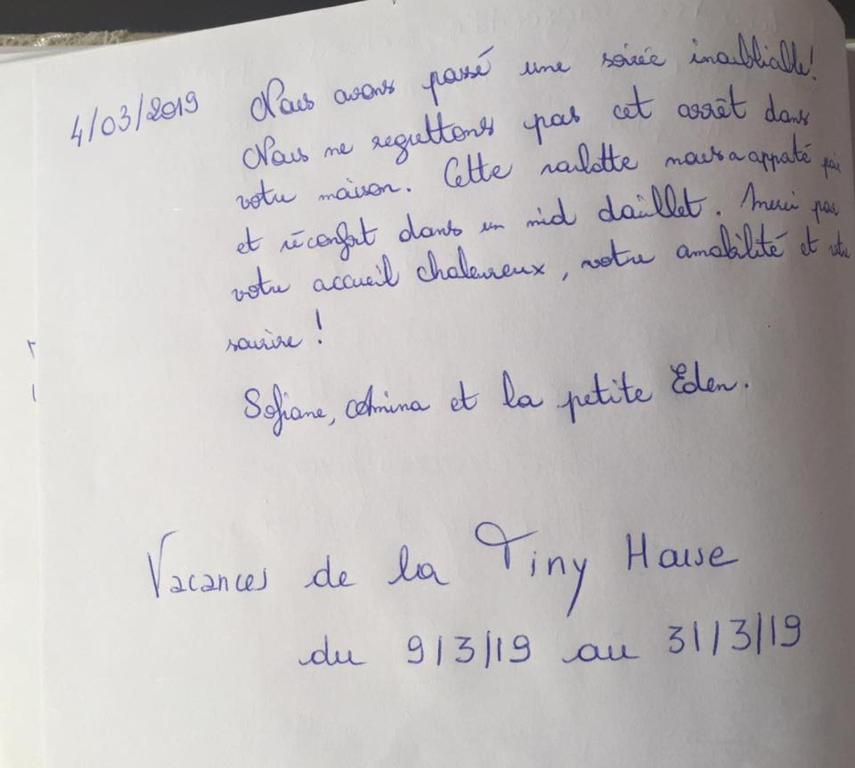 4/03/2019 Nous avons passé une soirée inoubliable!
Nous ne regrettons pas cet arrêt dans
votre maison. Cette roulotte nous a appaté
et réconfort dans un nid daillet. Merci par
votre accueil chaleureux, votre amabilité et votre
sourire !
Sofiane, Amina et la petite Eden.
Vacances de la Tiny House
du 9/3/19 au 31/3/19